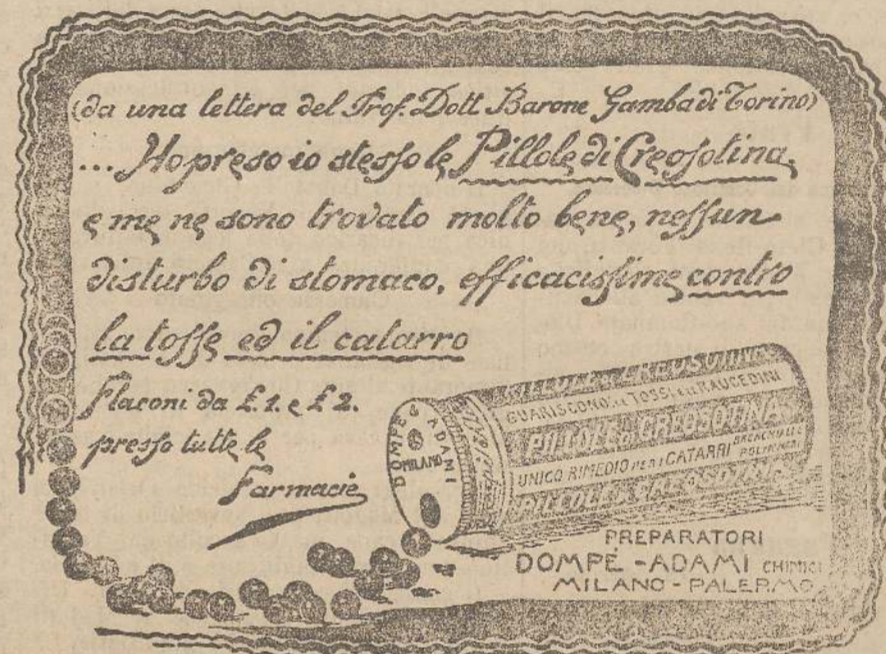 (da una lettera del Prof. Dott Barone Gamba di Torino)
... Ho preso io stesso le Pillole di Creosotina,
e me ne sono trovato molto bene, nessun
disturbo di stomaco, efficacissime contro
la tosse ed il catarro
Flaconi da £.1. e £2.
presso tutte le
Farmacie
DOMPÉ & ADAMI
MILANO
PILLOLE DI CREOSOTINA
GUARISCONO LE TOSSI E LE RAUCEDINI
PILLOLE DI CREOSOTINA
UNICO RIMEDIO PER I CATARRI BRONCHIALI POLMONARI
PILLOLE DI CREOSOTINA
PREPARATORI
DOMPÉ - ADAMI CHIMICI
MILANO - PALERMO